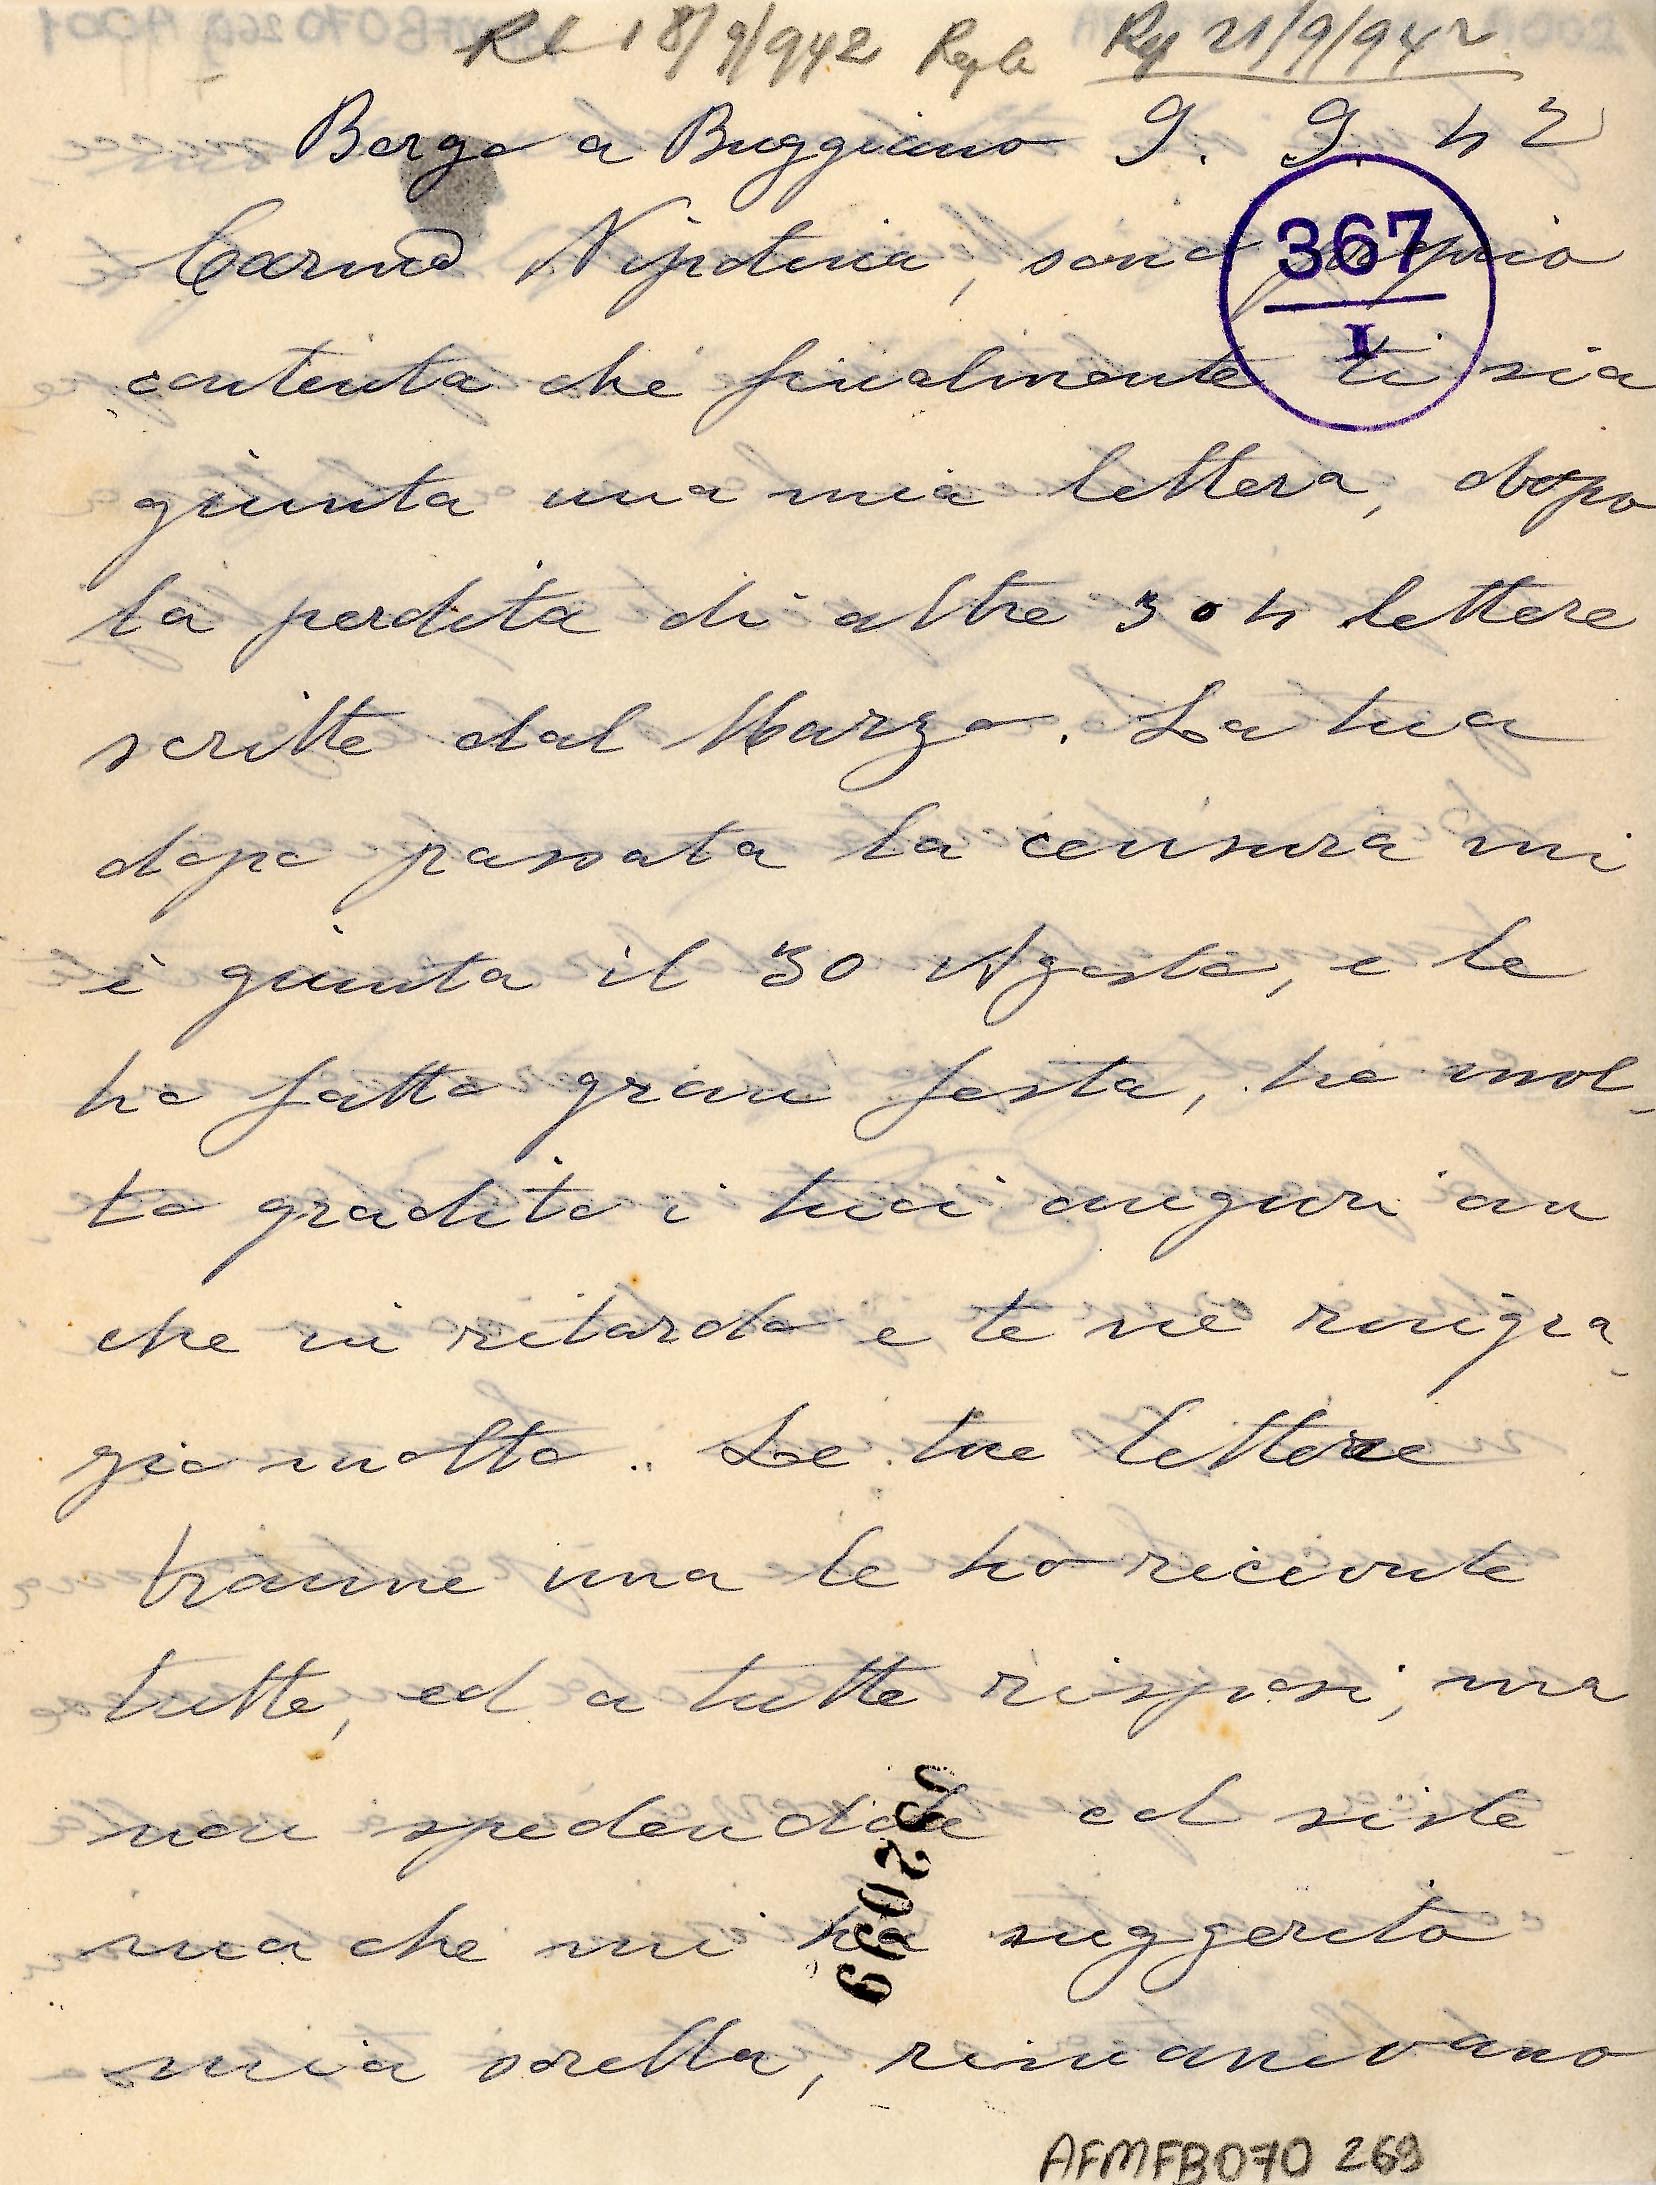 Rl 18/9/942 Ry 21/9/942
Borgo a Buggiano 9. 9. 42
Carina Nipotina, sono proprio
367
I
contenta che finalmente ti sia
giunta una mia lettera, dopo
la perdita di altre 3 o 4 lettere
scritte dal Marzo. La tua
dopo passata la censura mi
è giunta il 30 Agosto, e le
ho fatto gran festa, ho mol-
to gradito i tuoi auguri an
che in ritardo e te ne ringra-
zio molto. Le tue lettere
tranne una le ho ricevute
tutte, ed a tutte risposi, ma
non spedendole col siste-
ma che mi ha suggerito
mia sorella, rimanevano
03209
AFMFB070 269